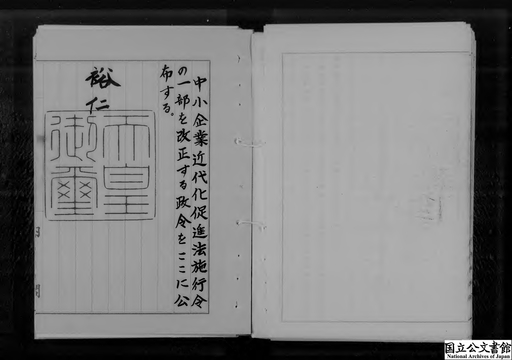 中小企業近代化促進法施行令
の一部を改正する政令をここに公
布する。
裕仁
天皇
御璽
月
国立公文書館
National Archives of Japan